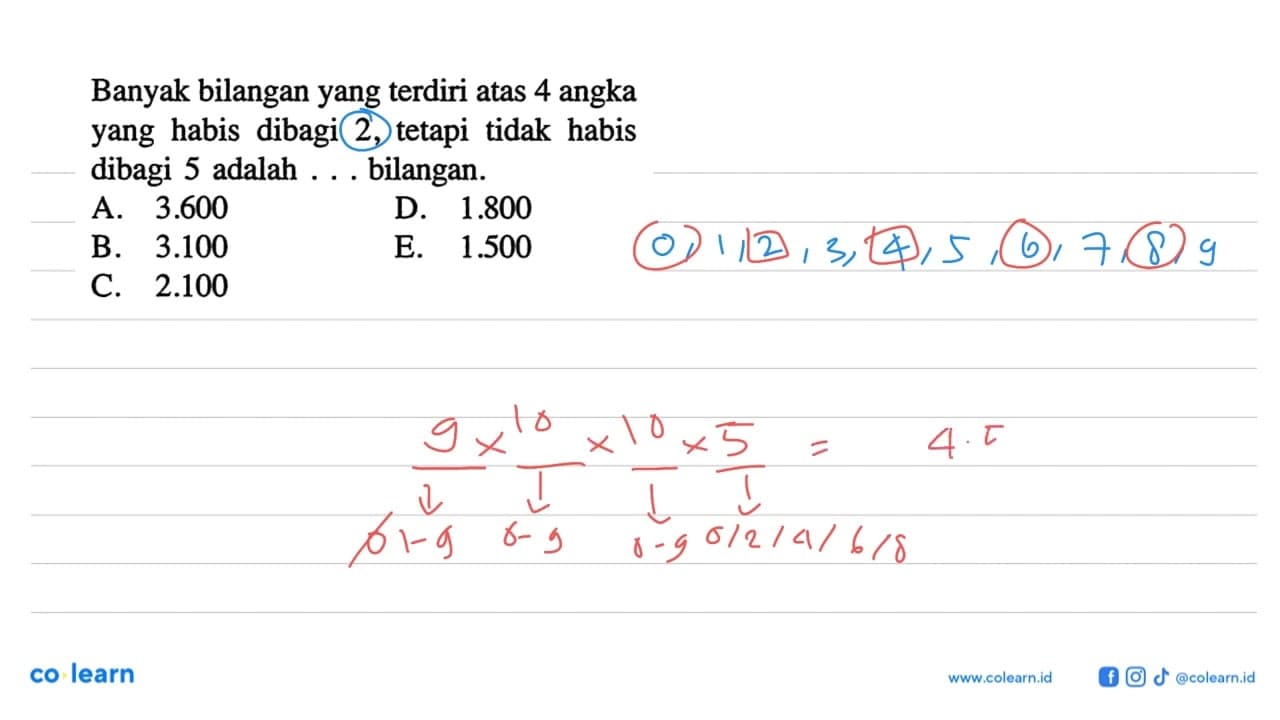 Banyak bilangan yang terdiri atas 4 angka
yang habis dibagi 2, tetapi tidak habis
dibagi 5 adalah . . . bilangan.
A. 3.600 D. 1.800
B. 3.100 E. 1.500
C. 2.100
0, 1, 2, 3, 4, 5, 6, 7, 8, 9
9 x 10 x 10 x 5 = 4.5
0 1-9 0-9 0-9 0/2/4/6/8
co learn
www.colearn.id @colearn.id